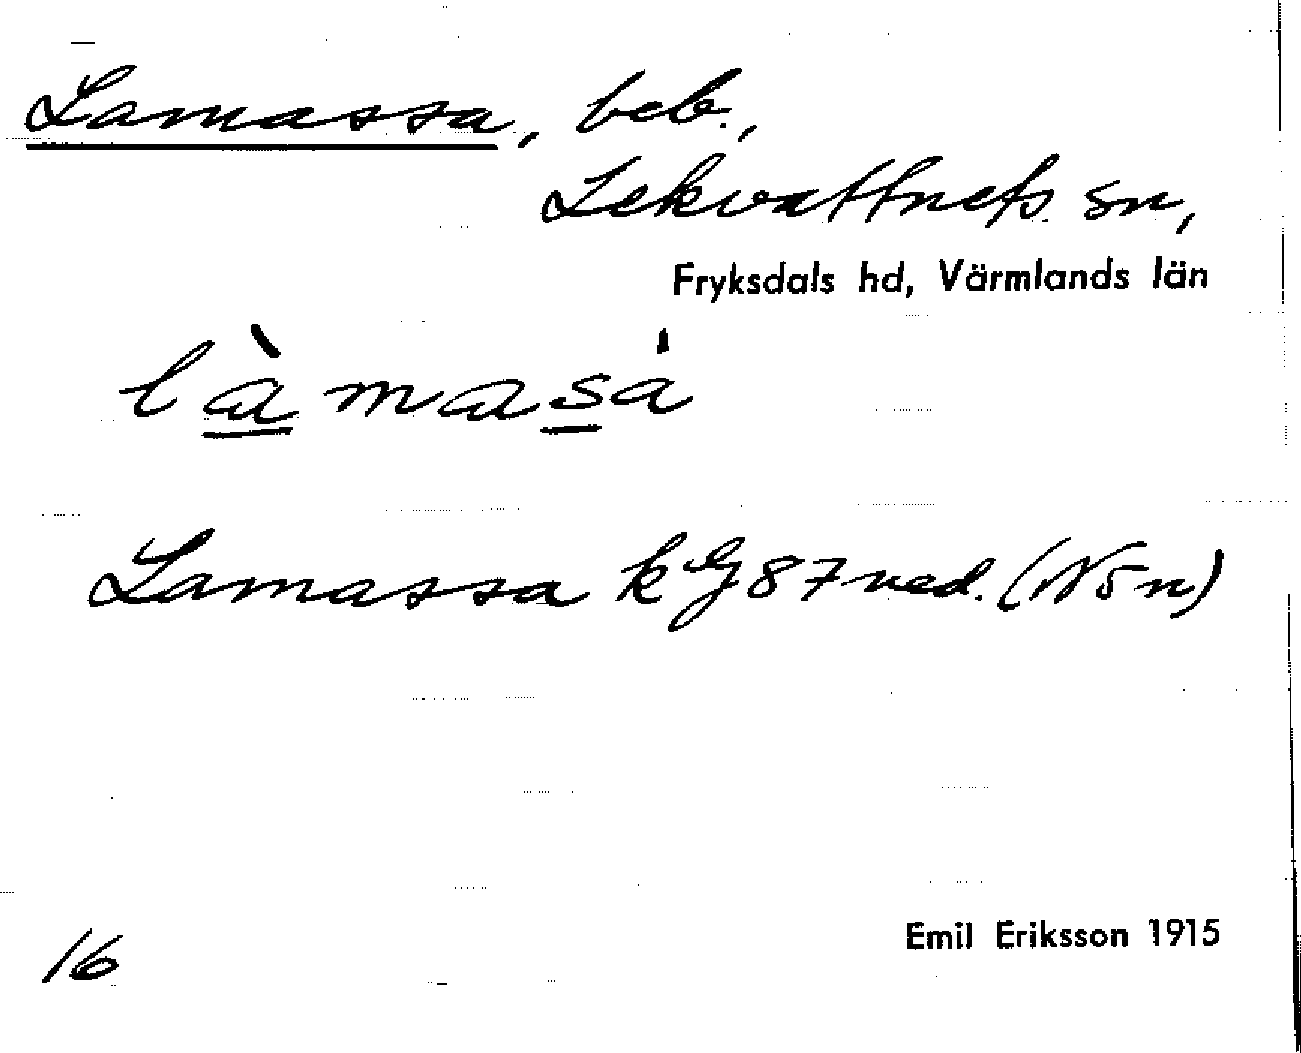 Lamassa, beb.,
Lekvattnets sn,
Fryksdals hd, Värmlands län
làmasá
Lamassa kG 87 ned. (N5n)
16
Emil Eriksson 1915